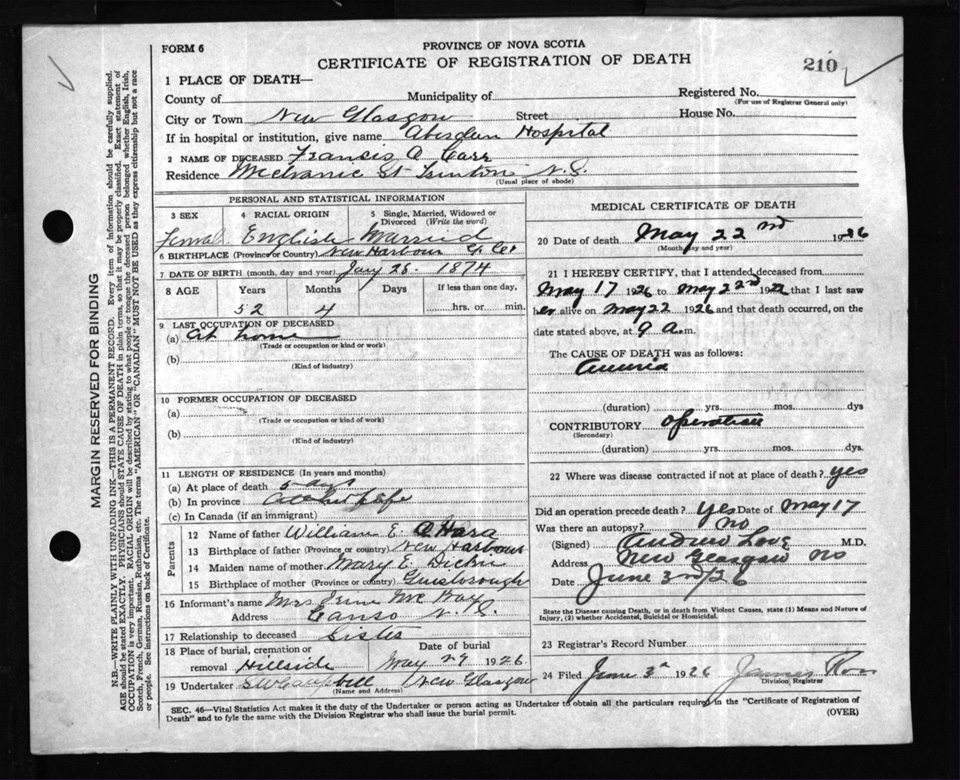 FORM 6
PROVINCE OF NOVA SCOTIA
CERTIFICATE OF REGISTRATION OF DEATH
210
1 PLACE OF DEATH—
County of Municipality of Registered No.
(For use of Registrar General only)
City or Town New Glasgow Street House No.
If in hospital or institution, give name Aberdeen Hospital
2 NAME OF DECEASED Francis A Carr
Residence Mechanic St N.S.
(Usual place of abode)
PERSONAL AND STATISTICAL INFORMATION
3 SEX 4 RACIAL ORIGIN 5 Single, Married, Widowed or Divorced (Write the word)
Female English Married
6 BIRTHPLACE (Province or Country) New Harbour G. Co.
7 DATE OF BIRTH (month, day and year) Jany 28. 1874
8 AGE Years Months Days If less than one day,
52 4 hrs. or min.
9 LAST OCCUPATION OF DECEASED
(a) at home
(Trade or occupation or kind or work)
(b)
(Kind of industry)
10 FORMER OCCUPATION OF DECEASED
(a)
(Trade or occupation or kind of work)
(b)
(Kind of industry)
11 LENGTH OF RESIDENCE (In years and months)
(a) At place of death 5 days
(b) In province life
(c) In Canada (if an immigrant)
Parents
12 Name of father William E O'Hara
13 Birthplace of father (Province or country) New Harbour
14 Maiden name of mother Mary E.
15 Birthplace of mother (Province or country) Guysborough
16 Informant's name Mrs
Address Canso N.S.
17 Relationship to deceased Sister
18 Place of burial, cremation or removal Hillside Date of burial May 29 1926.
19 Undertaker Campbell New Glasgow
(Name and Address)
MEDICAL CERTIFICATE OF DEATH
20 Date of death May 22nd 1926
(Month day and year)
21 I HEREBY CERTIFY, that I attended deceased from
May 17 1926 to May 22nd 1926 that I last saw
her alive on May 22 1926 and that death occurred, on the
date stated above, at 9 a.m.
The CAUSE OF DEATH was as follows:
(duration) yrs. mos. dys
CONTRIBUTORY operation
(Secondary)
(duration) yrs. mos. dys
22 Where was disease contracted if not at place of death? yes
Did an operation precede death? yes Date of May 17
Was there an autopsy? no
(Signed) Andrew Love M.D.
Address New Glasgow
Date June 3rd/26
State the Disease causing Death, or in death from Violent Causes, state (1) Means and Nature of
Injury, (2) whether Accidental, Suicidal or Homicidal.
23 Registrar's Record Number
24 Filed June 3rd 1926 James
Division Registrar
SEC. 46—Vital Statistics Act makes it the duty of the Undertaker or person acting as Undertaker to obtain all the particulars required in the "Certificate of Registration of
Death" and to fyle the same with the Division Registrar who shall issue the burial permit.
(OVER)
MARGIN RESERVED FOR BINDING
N.B.—WRITE PLAINLY WITH UNFADING INK—THIS IS A PERMANENT RECORD. Every item of information should be carefully supplied.
AGE should be stated EXACTLY. PHYSICIANS should STATE CAUSE OF DEATH in plain terms, so that it may be properly classified. Exact statement of
OCCUPATION is very important. RACIAL ORIGIN will be described by stating to what people or tongue the deceased person belonged whether English, Irish,
Scotch, French, German, Russian, Ruthenian, etc. The terms "AMERICAN" or "CANADIAN" MUST NOT BE USED as they express citizenship but not a race
or people. See instructions on back of Certificate.